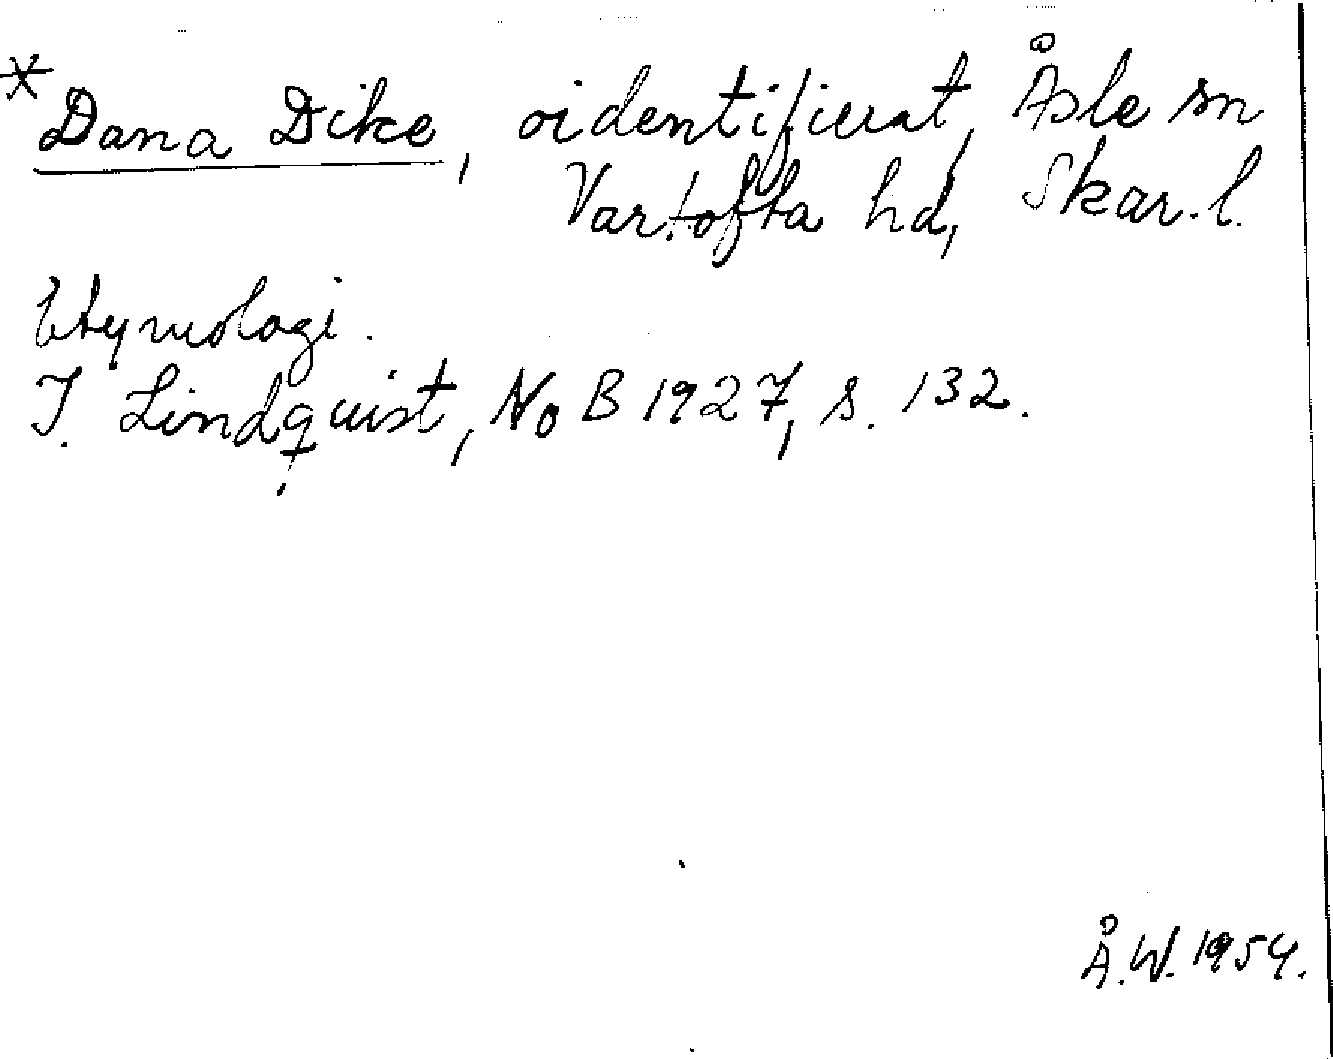 *Dana Dike, oidentifierat, Åsle sn
Vartofta hd, Skar. l.
Etymologi.
I. Lindquist, NoB 1927, s. 132.
Å.W. 1954.